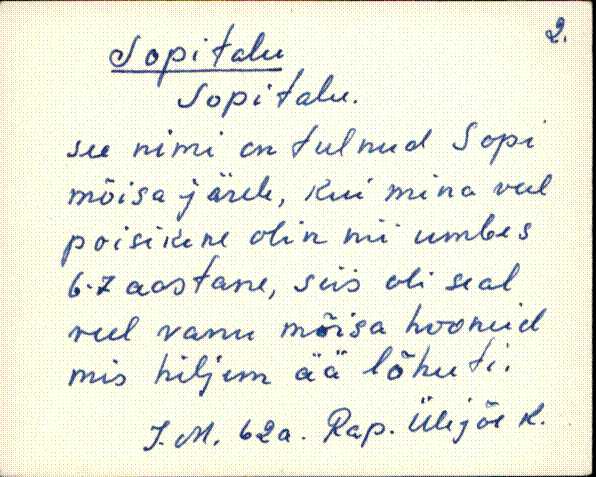 2.
Sopitalu
Sopitalu.
see nimi on tulnud Sopi
mõisa järele, kui mina veel
poisikene olin nii umbes
6-7 aastane, siis oli seal
veel vanu mõisa hooneid
mis hiljem ää lõhuti.
J. M. 62a. Rap. Ülejõe k.